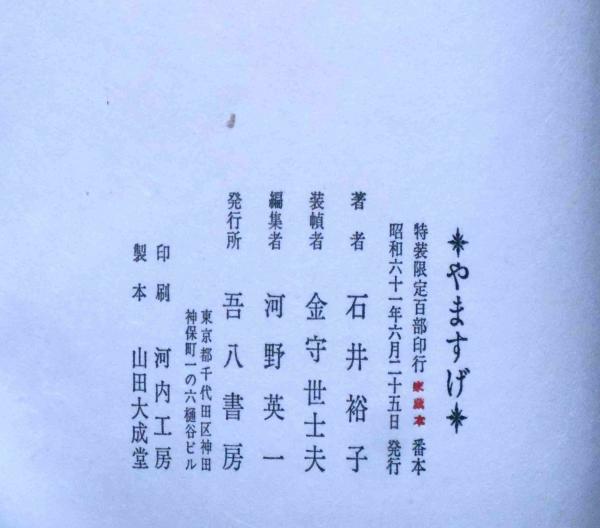 やますげ
特装限定百部印行 家蔵本 番本
昭和六十一年六月二十五日 発行
著者 石井裕子
装幀者 金守世士夫
編集者 河野英一
発行所 吾八書房
東京都千代田区神田
神保町一の六樋谷ビル
印刷 河内工房
製本 山田大成堂